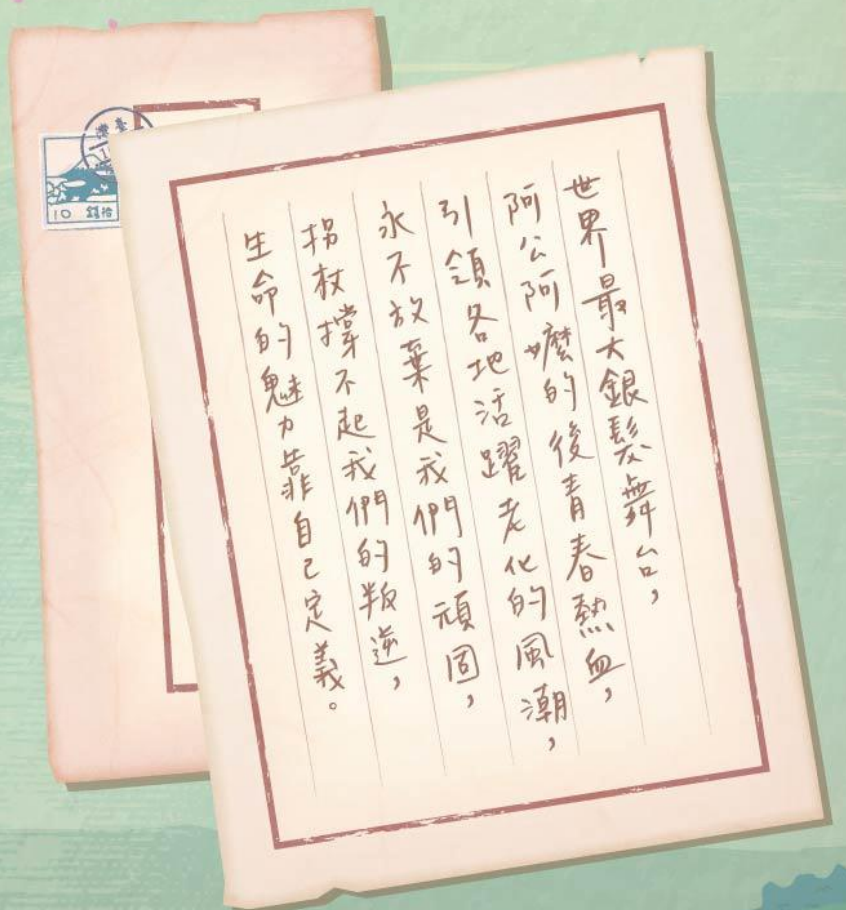 世界最大銀髮舞台，
阿公阿嬤的後青春熱血，
引領各地活躍老化的風潮，
永不放棄是我們的頑固，
拐杖撐不起我們的叛逆，
生命的魅力靠自己定義。
臺灣
10 錢拾